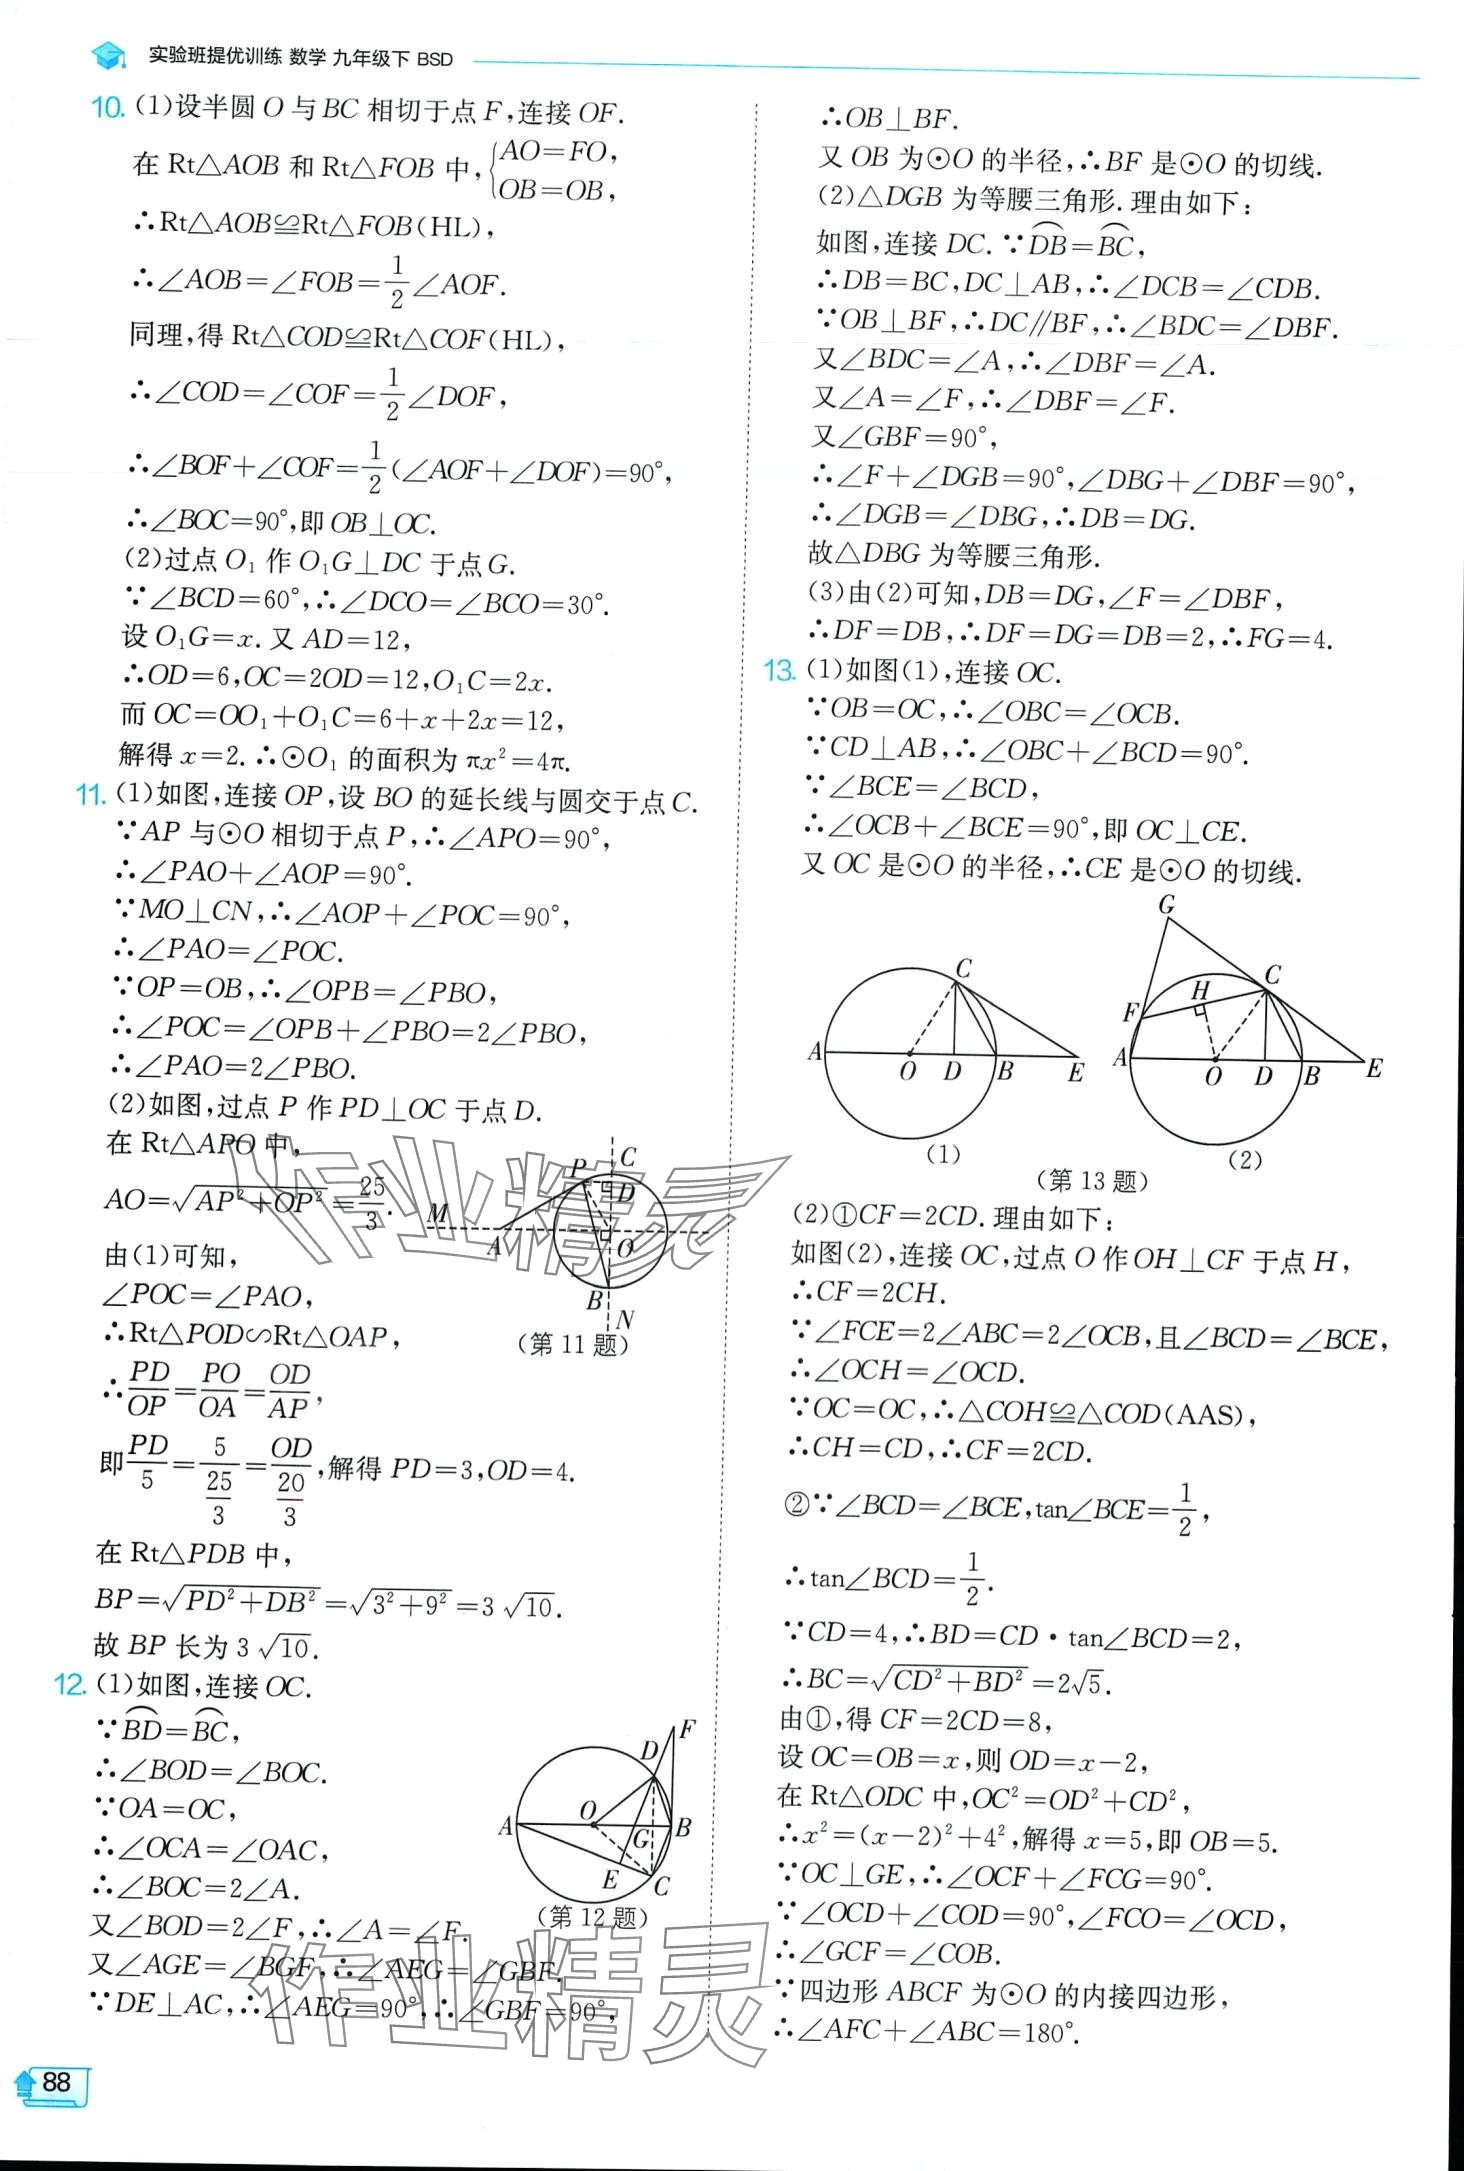 实验班提优训练 数学 九年级下 BSD
10. (1)设半圆 O 与 BC 相切于点 F,连接 OF.
在 Rt△AOB 和 Rt△FOB 中,{AO=FO,
OB=OB,
∴Rt△AOB≌Rt△FOB(HL),
∴∠AOB=∠FOB=1/2∠AOF.
同理,得 Rt△COD≌Rt△COF(HL),
∴∠COD=∠COF=1/2∠DOF,
∴∠BOF+∠COF=1/2(∠AOF+∠DOF)=90°,
∴∠BOC=90°,即 OB⊥OC.
(2)过点 O₁ 作 O₁G⊥DC 于点 G.
∵∠BCD=60°,∴∠DCO=∠BCO=30°.
设 O₁G=x.又 AD=12,
∴OD=6,OC=2OD=12,O₁C=2x.
而 OC=OO₁+O₁C=6+x+2x=12,
解得 x=2.∴⊙O₁ 的面积为 πx²=4π.
11. (1)如图,连接 OP,设 BO 的延长线与圆交于点 C.
∵AP 与⊙O 相切于点 P,∴∠APO=90°,
∴∠PAO+∠AOP=90°.
∵MO⊥CN,∴∠AOP+∠POC=90°,
∴∠PAO=∠POC.
∵OP=OB,∴∠OPB=∠PBO,
∴∠POC=∠OPB+∠PBO=2∠PBO,
∴∠PAO=2∠PBO.
(2)如图,过点 P 作 PD⊥OC 于点 D.
在 Rt△APO 中,
AO=√(AP²+OP²)=25/3.
由(1)可知,
∠POC=∠PAO,
∴Rt△POD∽Rt△OAP,
∴PD/OP=PO/OA=OD/AP,
即PD/5=5/(25/3)=OD/(20/3),解得 PD=3,OD=4.
在 Rt△PDB 中,
BP=√(PD²+DB²)=√(3²+9²)=3√10.
故 BP 长为 3√10.
M A P C D O B N
(第 11 题)
12. (1)如图,连接 OC.
∵⌒BD=⌒BC,
∴∠BOD=∠BOC.
∵OA=OC,
∴∠OCA=∠OAC,
∴∠BOC=2∠A.
又∠BOD=2∠F,∴∠A=∠F.
又∠AGE=∠BGF,∴∠AEG=∠GBF.
∵DE⊥AC,∴∠AEG=90°,∴∠GBF=90°,
A O D F G B E C
(第 12 题)
∴OB⊥BF.
又 OB 为⊙O 的半径,∴BF 是⊙O 的切线.
(2)△DGB 为等腰三角形.理由如下:
如图,连接 DC.∵⌒DB=⌒BC,
∴DB=BC,DC⊥AB,∴∠DCB=∠CDB.
∵OB⊥BF,∴DC∥BF,∴∠BDC=∠DBF.
又∠BDC=∠A,∴∠DBF=∠A.
又∠A=∠F,∴∠DBF=∠F.
又∠GBF=90°,
∴∠F+∠DGB=90°,∠DBG+∠DBF=90°,
∴∠DGB=∠DBG,∴DB=DG.
故△DBG 为等腰三角形.
(3)由(2)可知,DB=DG,∠F=∠DBF,
∴DF=DB,∴DF=DG=DB=2,∴FG=4.
13. (1)如图(1),连接 OC.
∵OB=OC,∴∠OBC=∠OCB.
∵CD⊥AB,∴∠OBC+∠BCD=90°.
∵∠BCE=∠BCD,
∴∠OCB+∠BCE=90°,即 OC⊥CE.
又 OC 是⊙O 的半径,∴CE 是⊙O 的切线.
A O D B E C
(1)
G F H C A O D B E
(2)
(第 13 题)
(2)①CF=2CD.理由如下:
如图(2),连接 OC,过点 O 作 OH⊥CF 于点 H,
∴CF=2CH.
∵∠FCE=2∠ABC=2∠OCB,且∠BCD=∠BCE,
∴∠OCH=∠OCD.
∵OC=OC,∴△COH≌△COD(AAS),
∴CH=CD,∴CF=2CD.
②∵∠BCD=∠BCE,tan∠BCE=1/2,
∴tan∠BCD=1/2.
∵CD=4,∴BD=CD·tan∠BCD=2,
∴BC=√(CD²+BD²)=2√5.
由①,得 CF=2CD=8,
设 OC=OB=x,则 OD=x−2,
在 Rt△ODC 中,OC²=OD²+CD²,
∴x²=(x−2)²+4²,解得 x=5,即 OB=5.
∵OC⊥GE,∴∠OCF+∠FCG=90°.
∵∠OCD+∠COD=90°,∠FCO=∠OCD,
∴∠GCF=∠COB.
∵四边形 ABCF 为⊙O 的内接四边形,
∴∠AFC+∠ABC=180°.
88
作业精灵
作业精灵